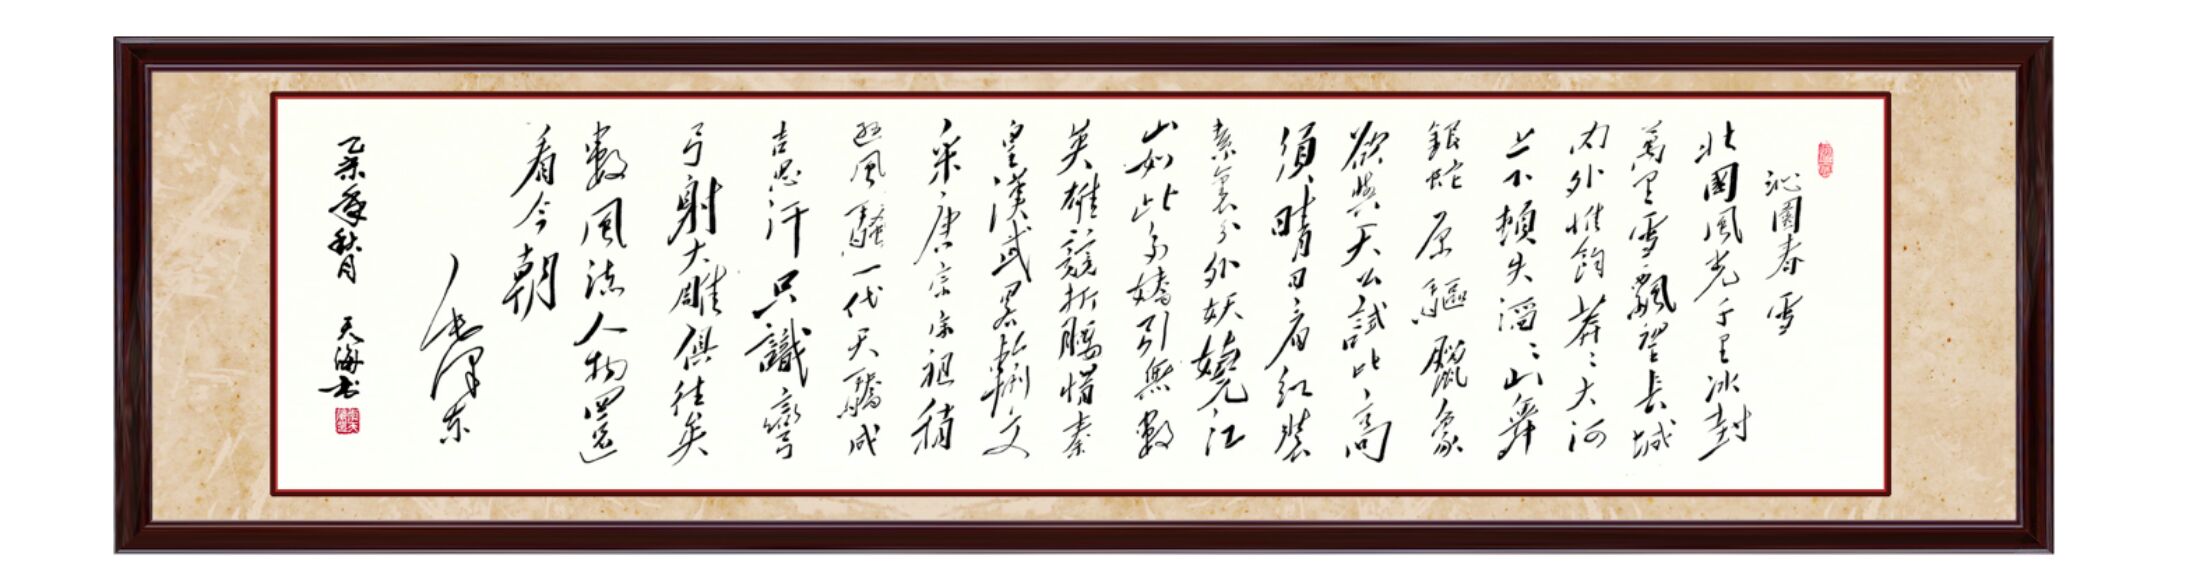 沁園春雪
北國風光千里冰封
萬里雪飄望長城
内外惟餘莽〻大河
上下頓失滔〻山舞
銀蛇原驅臘象
欲與天公試比高
須晴日看紅裝
素裹分外妖嬈江
山如此多嬌引無數
英雄競折腰惜秦
皇漢武畧輸文
采唐宗宋祖稍
遜風騷一代天驕成
吉思汗只識彎
弓射大雕俱往矣
數風流人物還
看今朝
毛澤東
乙亥年秋月 天海书